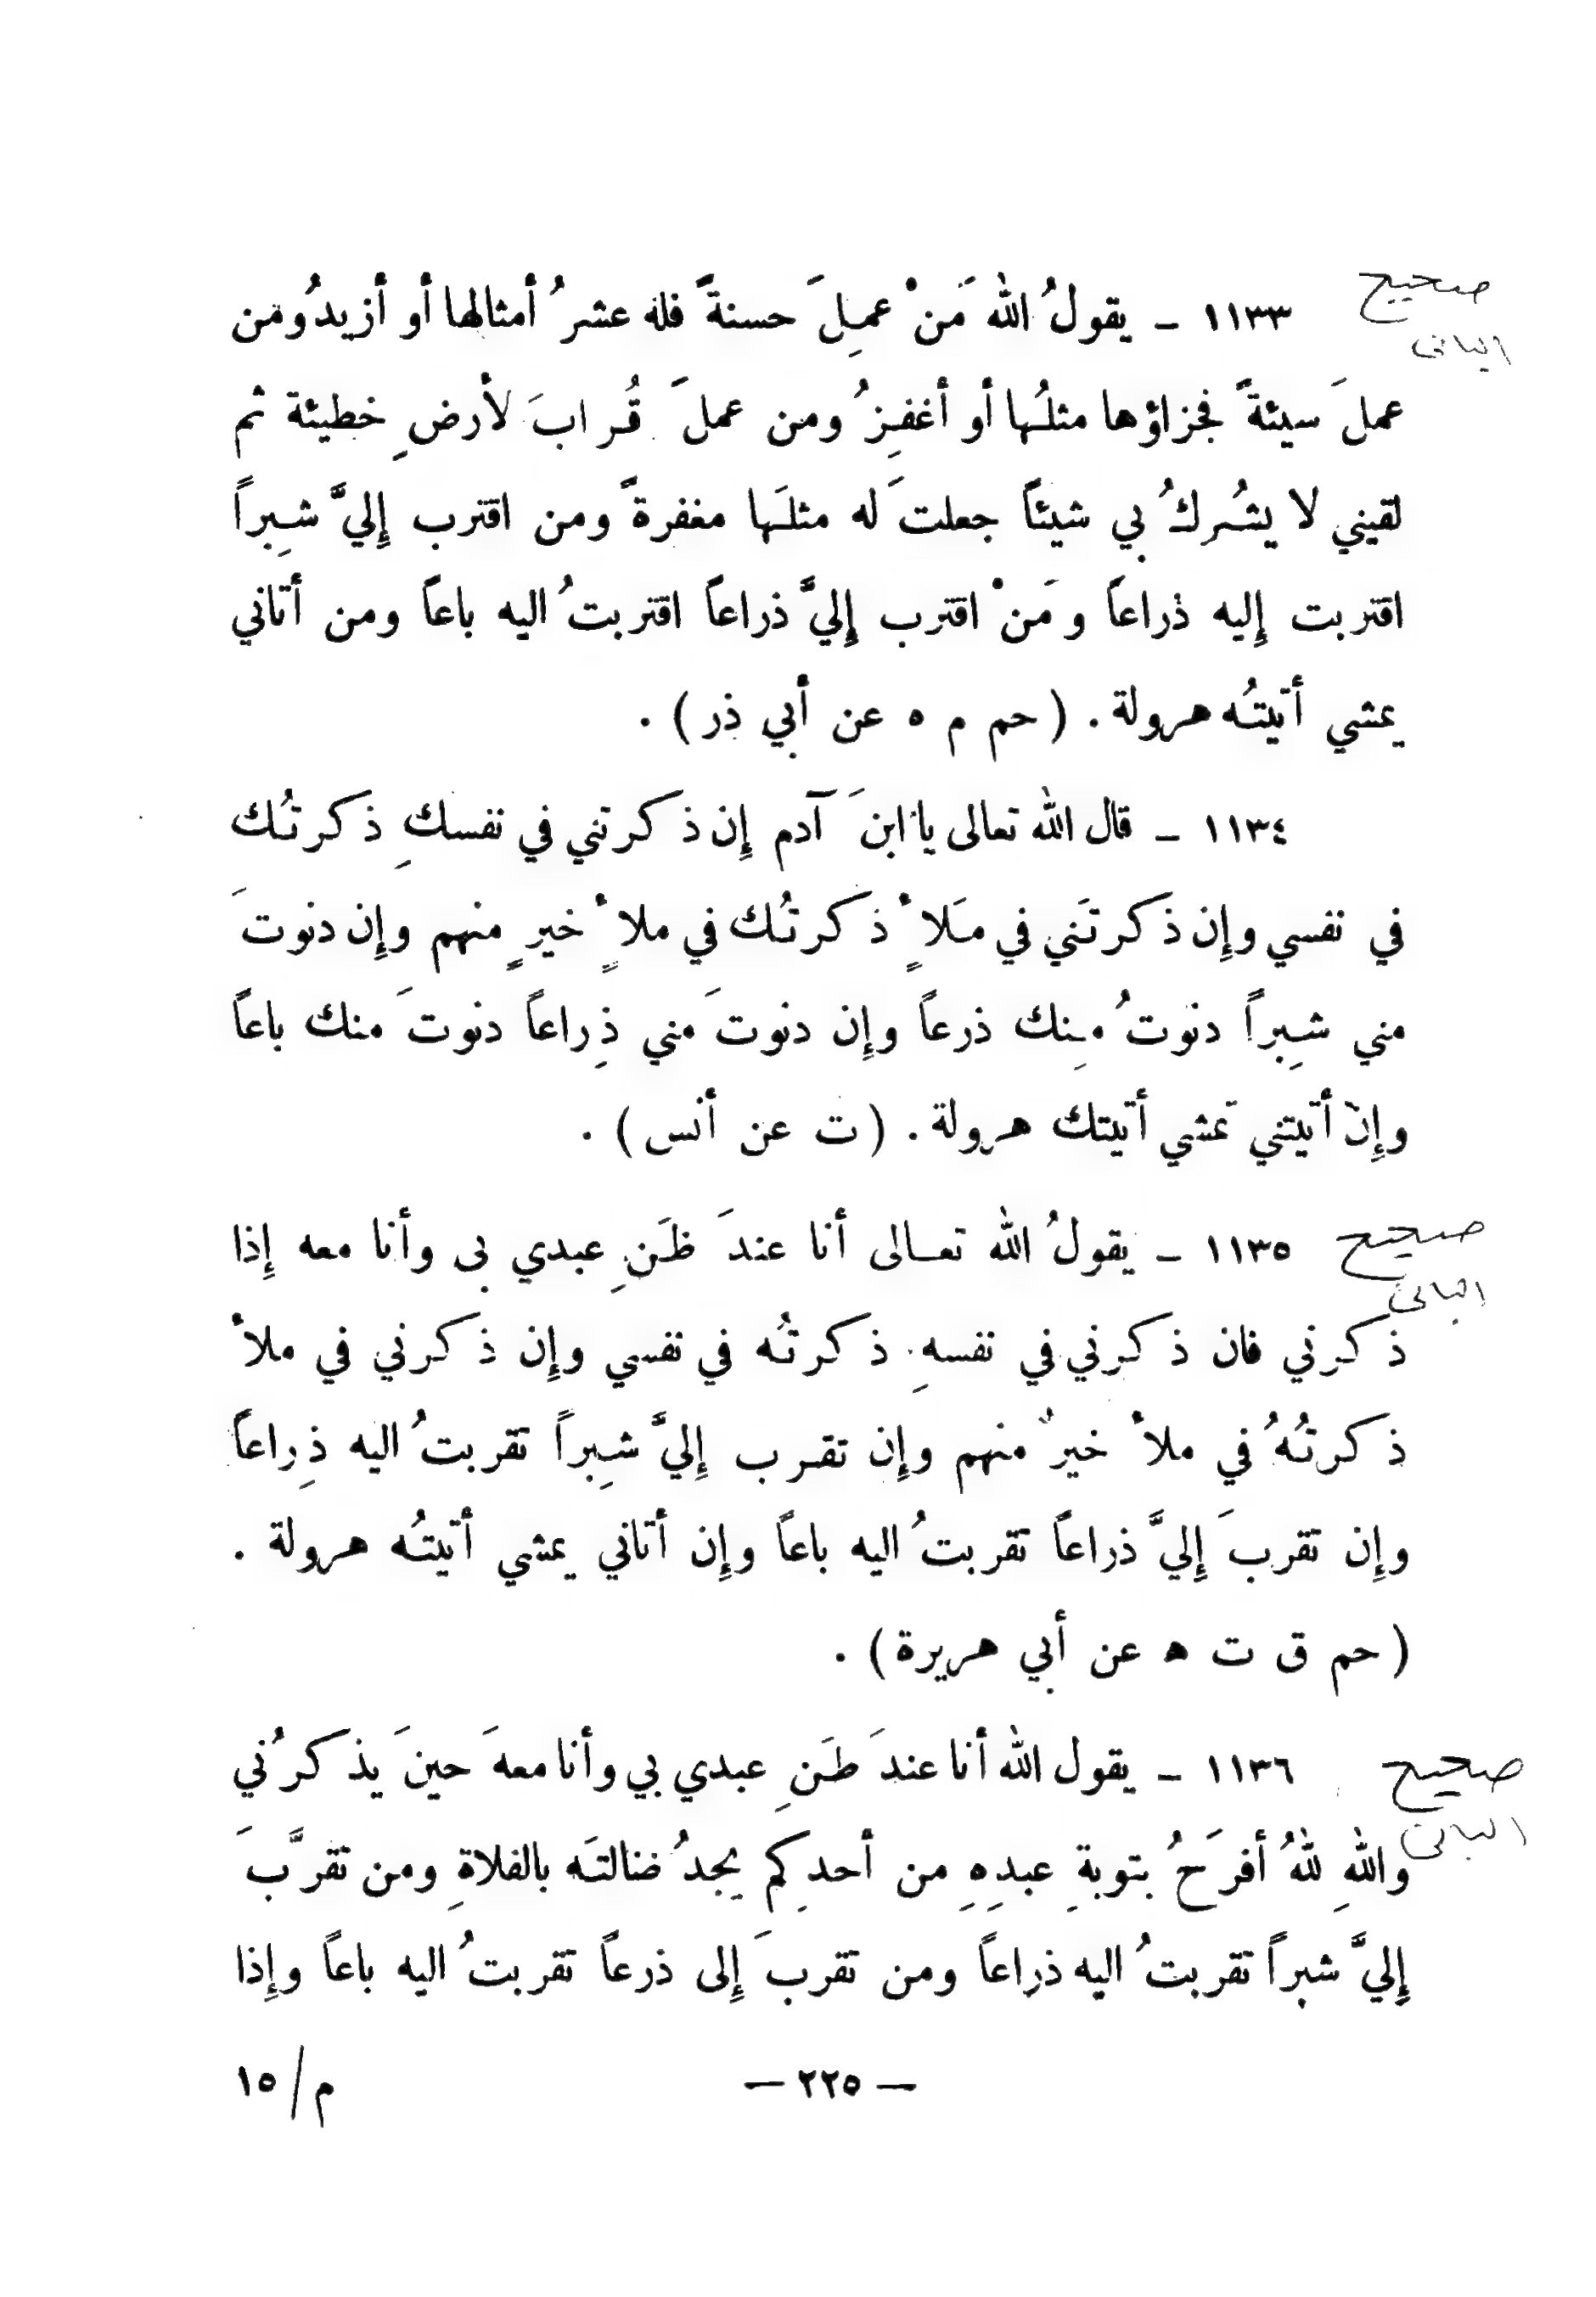 صحيح
١١٣٣ - يقولُ الله مَنْ عمِلَ حسنةً فله عشرُ أمثالها أو أزيدُ ومن
الباني
عملَ سيئةً فجزاؤها مثلُها أو أغفِرُ ومن عملَ قُرابَ لأرضِ خطيئة ثم
لقيني لا يشُركُ بي شيئاً جعلتَ له مثلَها مغفرةً ومن اقترب إِليَّ شِبراً
اقتربت إِليه ذراعاً ومَنْ اقترب إِليَّ ذراعاً اقتربتُ اليه باعاً ومن أتاني
يمشي أتيتُه هرولة . ( حم م ه عن أبي ذر ) .
١١٣٤ - قال الله تعالى يا ابنَ آدم إِن ذكرتني في نفسكِ ذكرتُك
في نفسي وإِن ذكرتَني في مَلأٍ ذكرتُك في ملأٍ خيرٍ منهم وإِن دنوتَ
مني شِبراً دنوتُ مِنك ذرعاً وإِن دنوتَ مني ذِراعاً دنوتَ منك باعاً
وإِن أتيتني تمشي أتيتك هرولة . ( ت عن أنس ) .
صحيح
١١٣٥ - يقولُ الله تعالى أنا عندَ ظَنِ عبدي بى وأنا معه إِذا
الباني
ذكرني فان ذكرني في نفسهِ ذكرتُه في نفسي وإِن ذكرني في ملأ
ذكرتُهُ في ملأ خيرٌ منهم وإِن تقرب إِليَّ شِبراً تقربتُ اليه ذِراعاً
وإِن تقربَ إِليَّ ذراعاً تقربتُ اليه باعاً وإِن أتاني يمشي أتيتُه هرولة .
( حم ق ت ه عن أبي هريرة ) .
صحيح
١١٣٦ - يقول الله أنا عندَ ظَنِ عبدي بي وأنا معهَ حينَ يذكرُني
الباني
واللهِ للهُ أفرَحُ بتوبةِ عبدِهِ من أحدِكم يجدُ ضالتَه بالفلاةِ ومن تقرَّبَ
إِليَّ شبراً تقربتُ اليه ذراعاً ومن تقربَ إِلى ذرعاً تقربتُ اليه باعاً وإِذا
- ٢٢٥ -
م/١٥